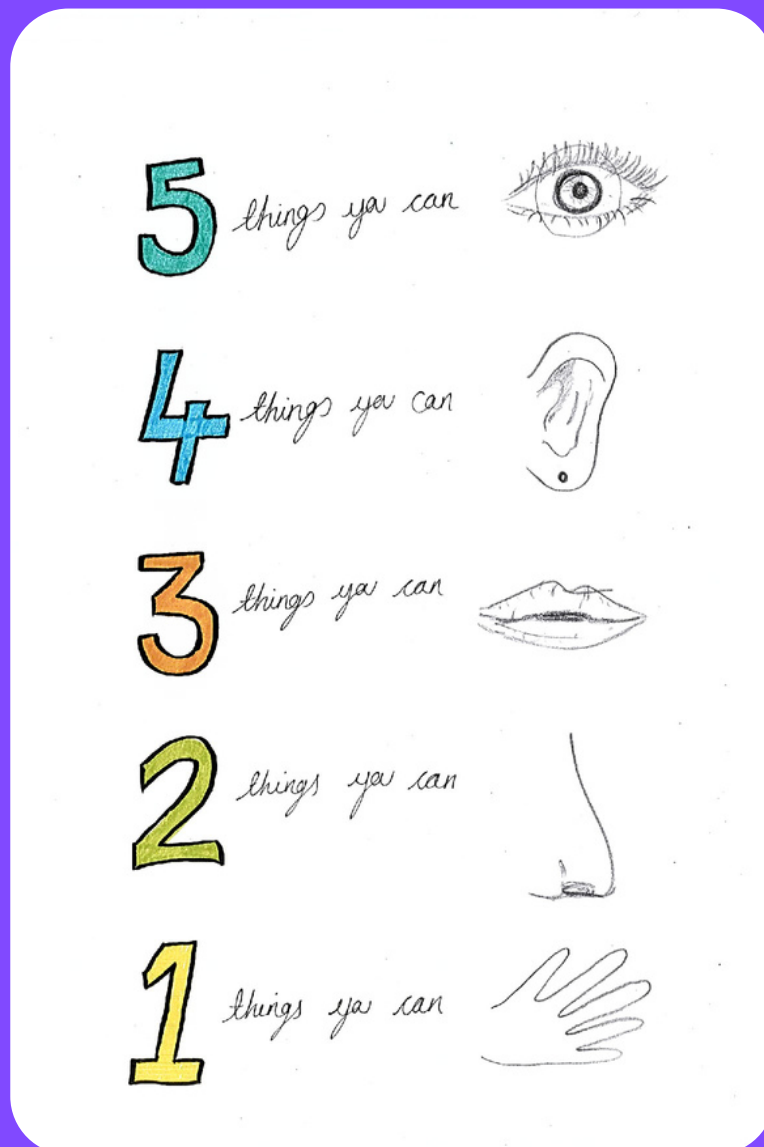 5 things you can
4 things you can
3 things you can
2 things you can
1 things you can